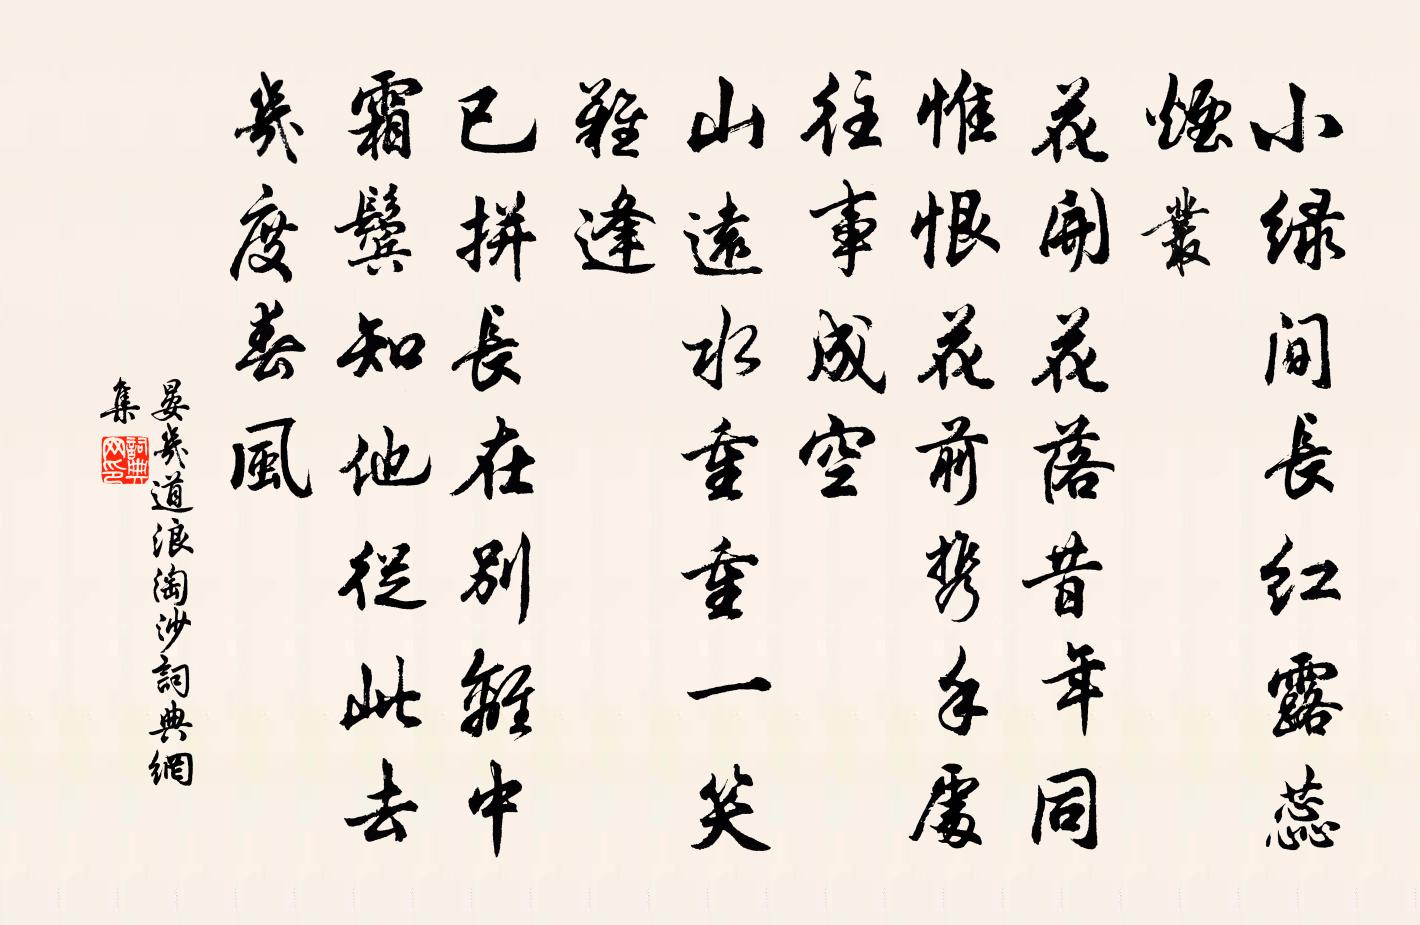 小綠间長红露蕊
煙叢
花開花落昔年同
惟恨花前携手處
往事成空
山遠水重重一笑
難逢
已拼長在別離中
霜鬓知他從此去
幾度春風
晏幾道浪淘沙詞典網
集
詞典
网印